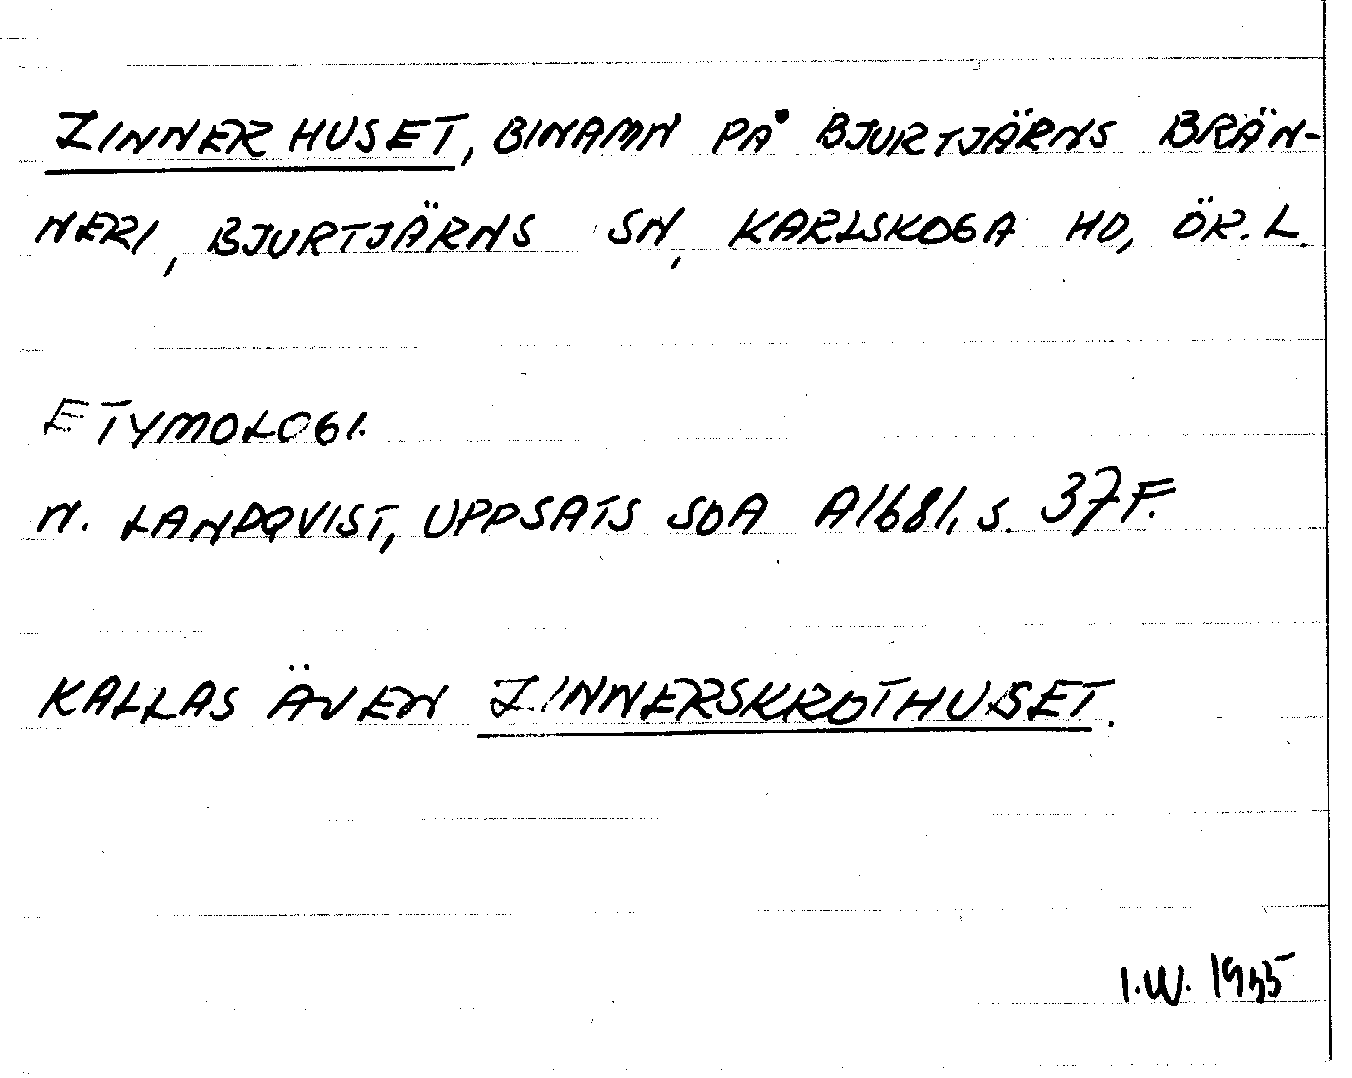 ZINNERHUSET, BINAMN PÅ BJURTJÄRNS BRÄN-
NERI, BJURTJÄRNS SN, KARLSKOGA HD, ÖR. L.
ETYMOLOGI.
N. LANDQVIST, UPPSATS SOA A1681, S. 37 F.
KALLAS ÄVEN ZINNERSKROTHUSET.
I.W. 1955